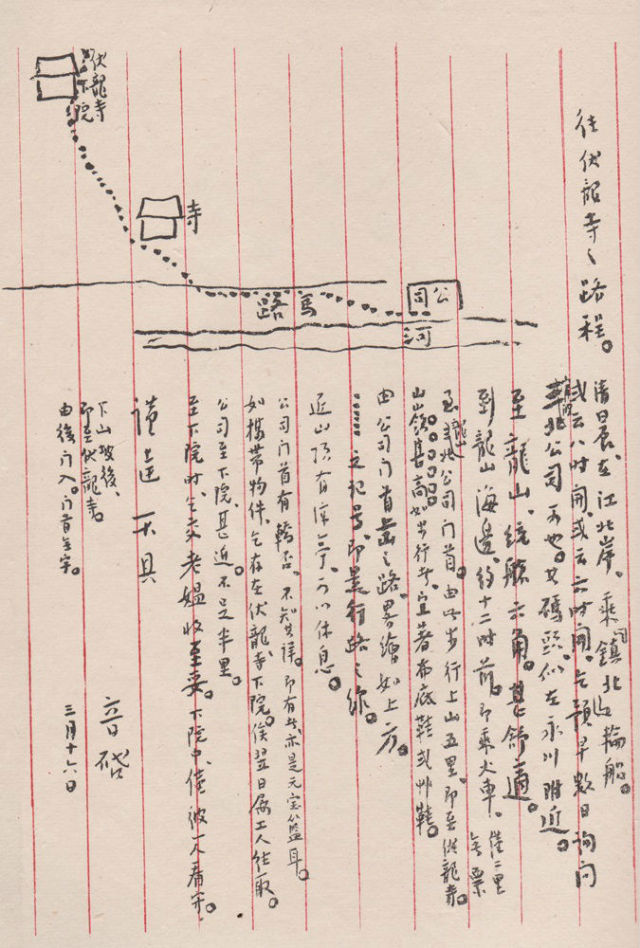 往伏龍寺之路程。
清晨、在江北岸、乘鎮北輪船。
或云八時開、或云六時開。乞預早數日詢問
北公司可也。其碼頭、似在永川附近。
至龍山、統艙六角。甚舒適。
到龍山海邊、約十二時前。即乘火車。僅二里
無票
至龍山公司門首。由此步行上山五里、即至伏龍寺。
山嶺甚高、如步行者、宜著布底鞋或艸鞋。
由公司門首上山之路、畧繪如上方。
之記号、即是行路之線。
近山頂有涼亭、可以休息。
公司門首有轎否、不知其詳。即有者、亦是元宝籃耳。
如攜帶物件、乞存在伏龍寺下院。俟翌日囑工人往取。
公司至下院、甚近。不足半里。
至下院時、乞交老媼收至要。下院中、僅彼一人看守。
謹達不具
音啓
三月十六日
下山坡後、
即至伏龍寺。
由後門入。門首無字。
公司
河
馬路
寺
伏龍寺
下院